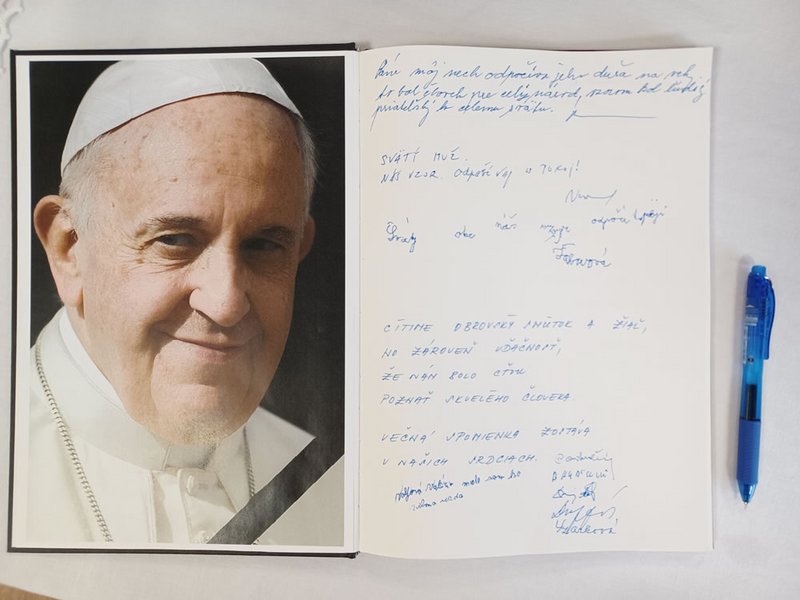 Pane môj nech odpočíva jeho duša na veky
to bol človek pre celý národ, vzorom bol ľudský
priateľský k celému svetu.
SVÄTÝ MUŽ.
NÁŠ VZOR. ODPOČÍVAJ V POKOJI!
Svätý otec náš odpočí
ČÍTIME OBROVSKÝ SMÚTOK A ŽIAĽ,
NO ZÁROVEŇ VĎAČNOSŤ,
ŽE NÁM BOLO CŤOU
POZNAŤ SKVELÉHO ČLOVEKA
VEČNÁ SPOMIENKA ZOSTÁVA
V NAŠICH SRDCIACH.
mala som ho
veľmi rada